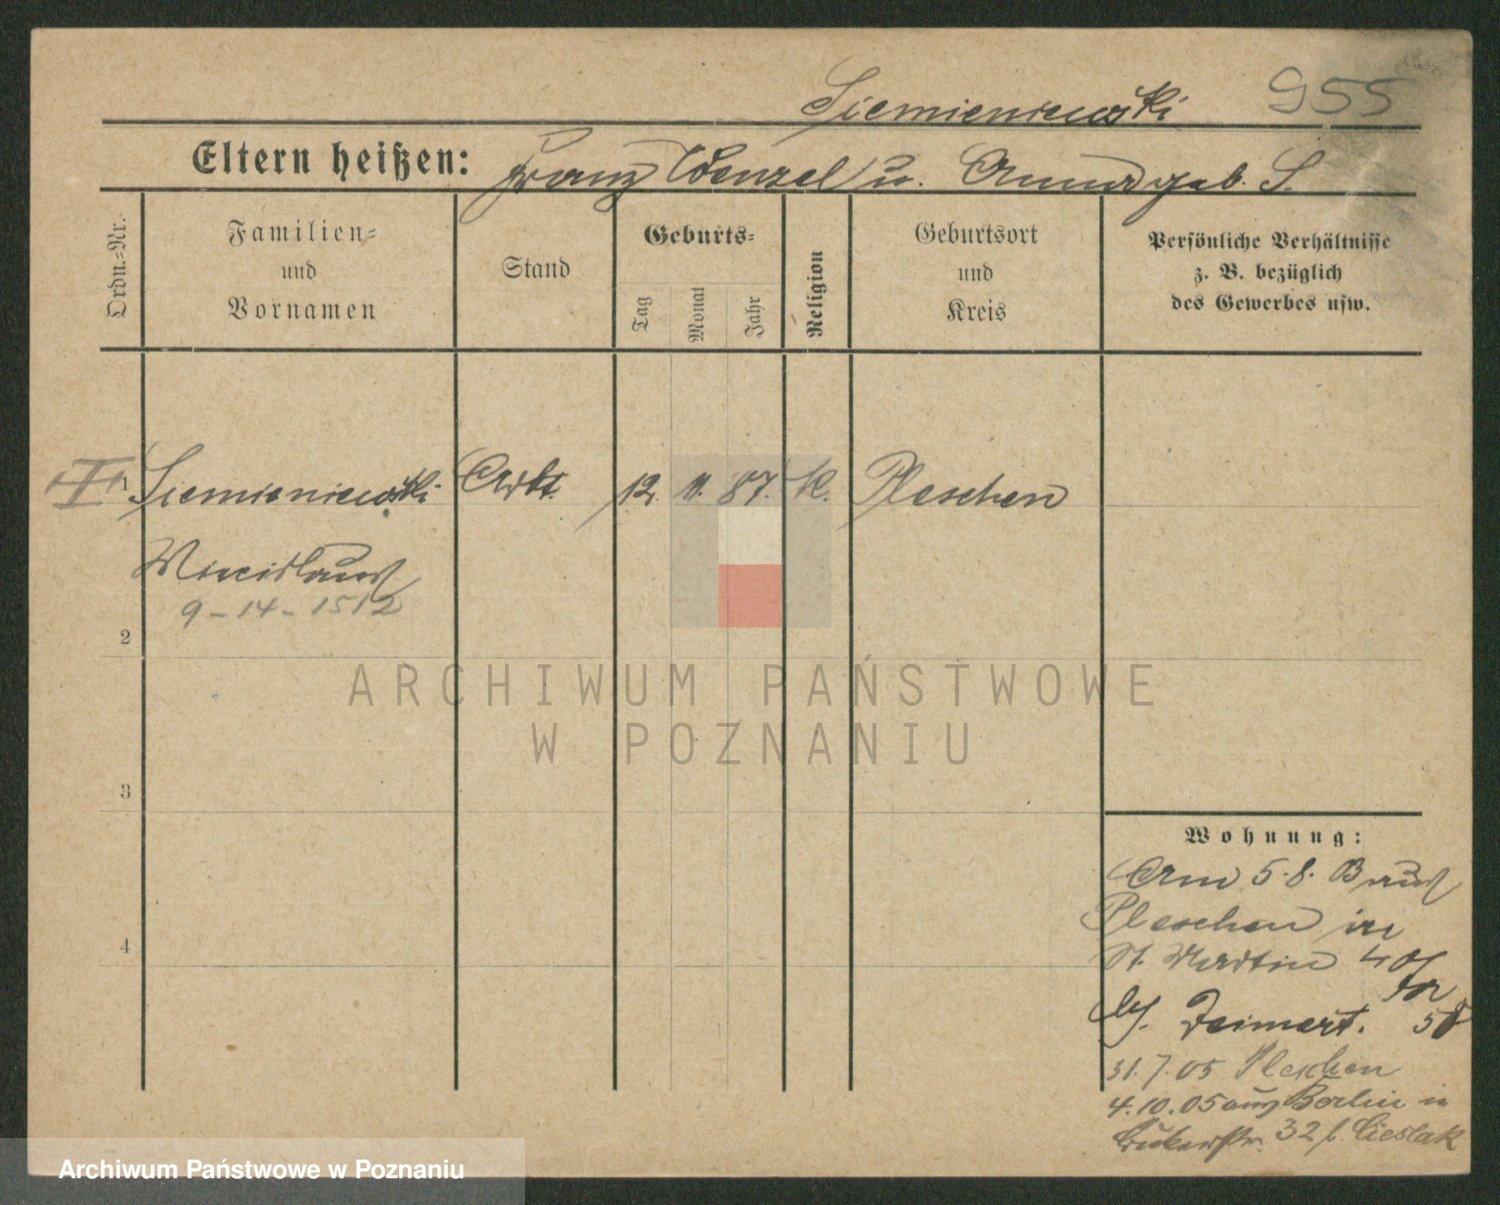 Siemieniewski 955
Eltern heißen: Franz Wenzel u. Anna geb. S.
Ordn.-Nr.
Familien-
und
Vornamen
Stand
Geburts-
Tag
Monat
Jahr
Religion
Geburtsort
und
Kreis
Persönliche Verhältnisse
z. B. bezüglich
des Gewerbes usw.
1 Siemieniewski Arbt. 12. 11. 87. k. Pleschen
9-14-1512
2
ARCHIWUM PAŃSTWOWE
W POZNANIU
3
4
Wohnung:
Am 5.8.
Pleschen in
St. Martin 40
31.7.05 Pleschen
4.10.05 aus Berlin in
32 b. Cieslak
Archiwum Państwowe w Poznaniu